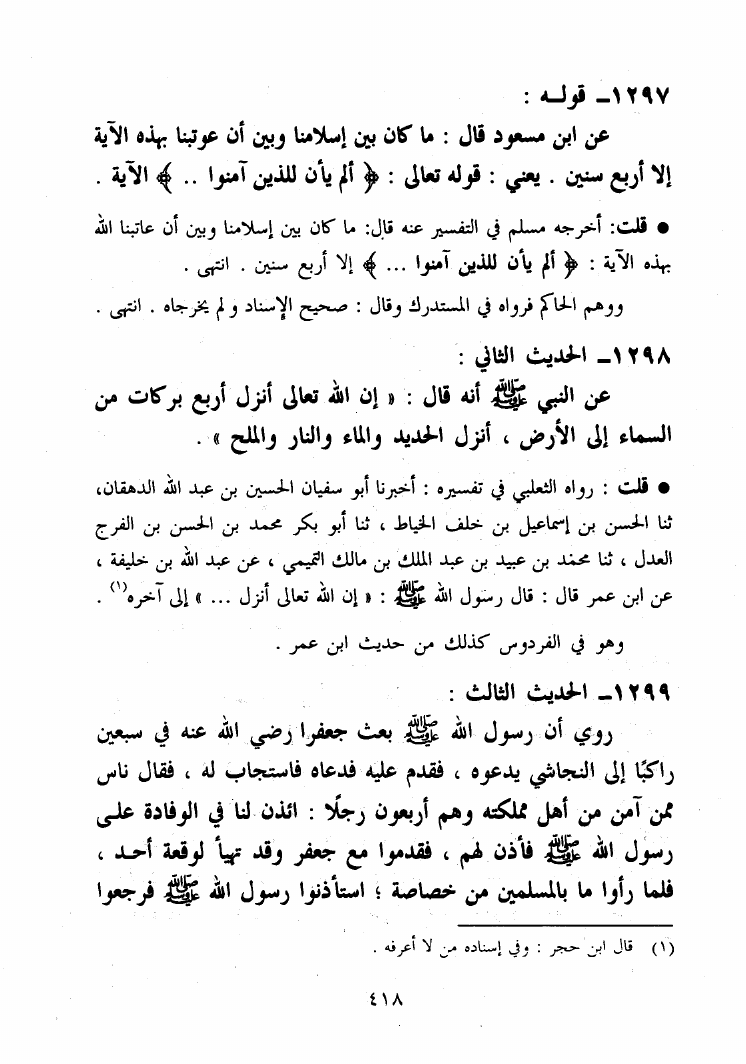 ١٢٩٧ـ قولـه :
عن ابن مسعود قال : ما كان بين إسلامنا وبين أن عوتبنا بهذه الآية
إلا أربع سنين . يعني : قوله تعالى : ﴿ ألم يأن للذين آمنوا .. ﴾ الآية .
● قلت: أخرجه مسلم في التفسير عنه قال: ما كان بين إسلامنا وبين أن عاتبنا الله
بهذه الآية : ﴿ ألم يأن للذين آمنوا ... ﴾ إلا أربع سنين . انتهى .
ووهم الحاكم فرواه في المستدرك وقال : صحيح الإسناد ولم يخرجاه . انتهى .
١٢٩٨ـ الحديث الثاني :
عن النبي ﷺ أنه قال : « إن الله تعالى أنزل أربع بركات من
السماء إلى الأرض ، أنزل الحديد والماء والنار والملح » .
● قلت : رواه الثعلبي في تفسيره : أخبرنا أبو سفيان الحسين بن عبد الله الدهقان،
ثنا الحسن بن إسماعيل بن خلف الخياط ، ثنا أبو بكر محمد بن الحسن بن الفرج
العدل ، ثنا محمد بن عبيد بن عبد الملك بن مالك التميمي ، عن عبد الله بن خليفة ،
عن ابن عمر قال : قال رسول الله ﷺ : « إن الله تعالى أنزل ... » إلى آخره(١) .
وهو في الفردوس كذلك من حديث ابن عمر .
١٢٩٩ـ الحديث الثالث :
روي أن رسول الله ﷺ بعث جعفرا رضي الله عنه في سبعين
راكبًا إلى النجاشي يدعوه ، فقدم عليه فدعاه فاستجاب له ، فقال ناس
ممن آمن من أهل مملكته وهم أربعون رجلًا : ائذن لنا في الوفادة على
رسول الله ﷺ فأذن لهم ، فقدموا مع جعفر وقد تهيأ لوقعة أحد ،
فلما رأوا ما بالمسلمين من خصاصة ؛ استأذنوا رسول الله ﷺ فرجعوا
(١) قال ابن حجر : وفي إسناده من لا أعرفه .
٤١٨